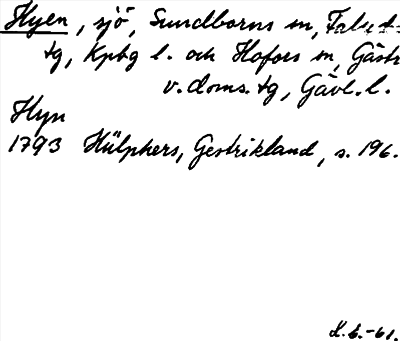 Hyen, sjö, Sundborns sn, Falu
tg, Kpbg l. och Hofors sn, Gästr
v. doms. tg, Gävl. l.
Hyn
1793 Hülphers, Gestrikland, s. 196.
-61.